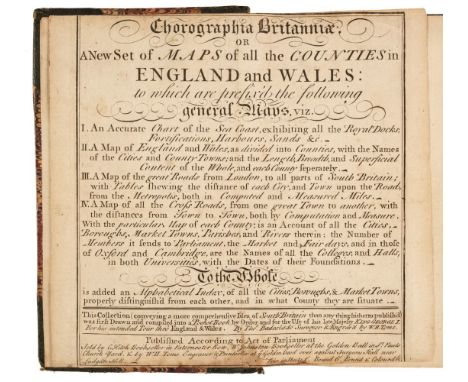 Chorographia Britanniæ,
OR
A New Set of MAPS of all the COUNTIES in
ENGLAND and WALES:
to which are prefix'd the following
general Maps, VIZ.
I. An Accurate Chart of the Sea Coast, exhibiting all the Royal Docks,
Fortifications, Harbours, Sands &c.
II. A Map of England and Wales, as divided into Counties, with the Names
of the Cities and County Towns; and the Length, Breadth, and Superficial
Content of the Whole, and each County seperately.
III. A Map of the great Roads from London, to all parts of South Britain;
with Tables shewing the distance of each City, and Town upon the Road,
from the Metropolis, both in Computed and Measured Miles.
IV. A Map of all the Cross Roads, from one great Town to another, with
the distances from Town to Town, both by Computation and Measure.
With the particular Map of each County; is an Account of all the Cities
Boroughs, Market Towns, Parishes, and Rivers therein: the Number of
Members it sends to Parliament, the Market and Fair days, and in those
of Oxford and Cambridge, are the Names of all the Colleges and Halls,
in both Universities, with the Dates of their Foundations.
To the Whole
is added an Alphabetical Index, of all the Cities, Boroughs, & Market Towns,
properly distinguish'd from each other, and in what County they are situate.
This Collection (conveying a more comprehensive Idea of South Britain than any thing hitherto publish'd)
was first Drawn and compiled into a Pocket Book, by Order and for the Use of his late Majesty KING GEORGE I.
For his intended Tour thro' England & Wales. By Tho. Badeslade Surveyor & Engrav'd by W.H. Toms.
Published According to Act of Parliament
Sold by C. Hitch Bookseller in Paternoster Row, W. Johnston Bookseller at the Golden Ball in St. Pauls
Church Yard, & by W.H. Toms Engraver & Printseller at ye golden head over against Surgeons Hall near
Ludgate